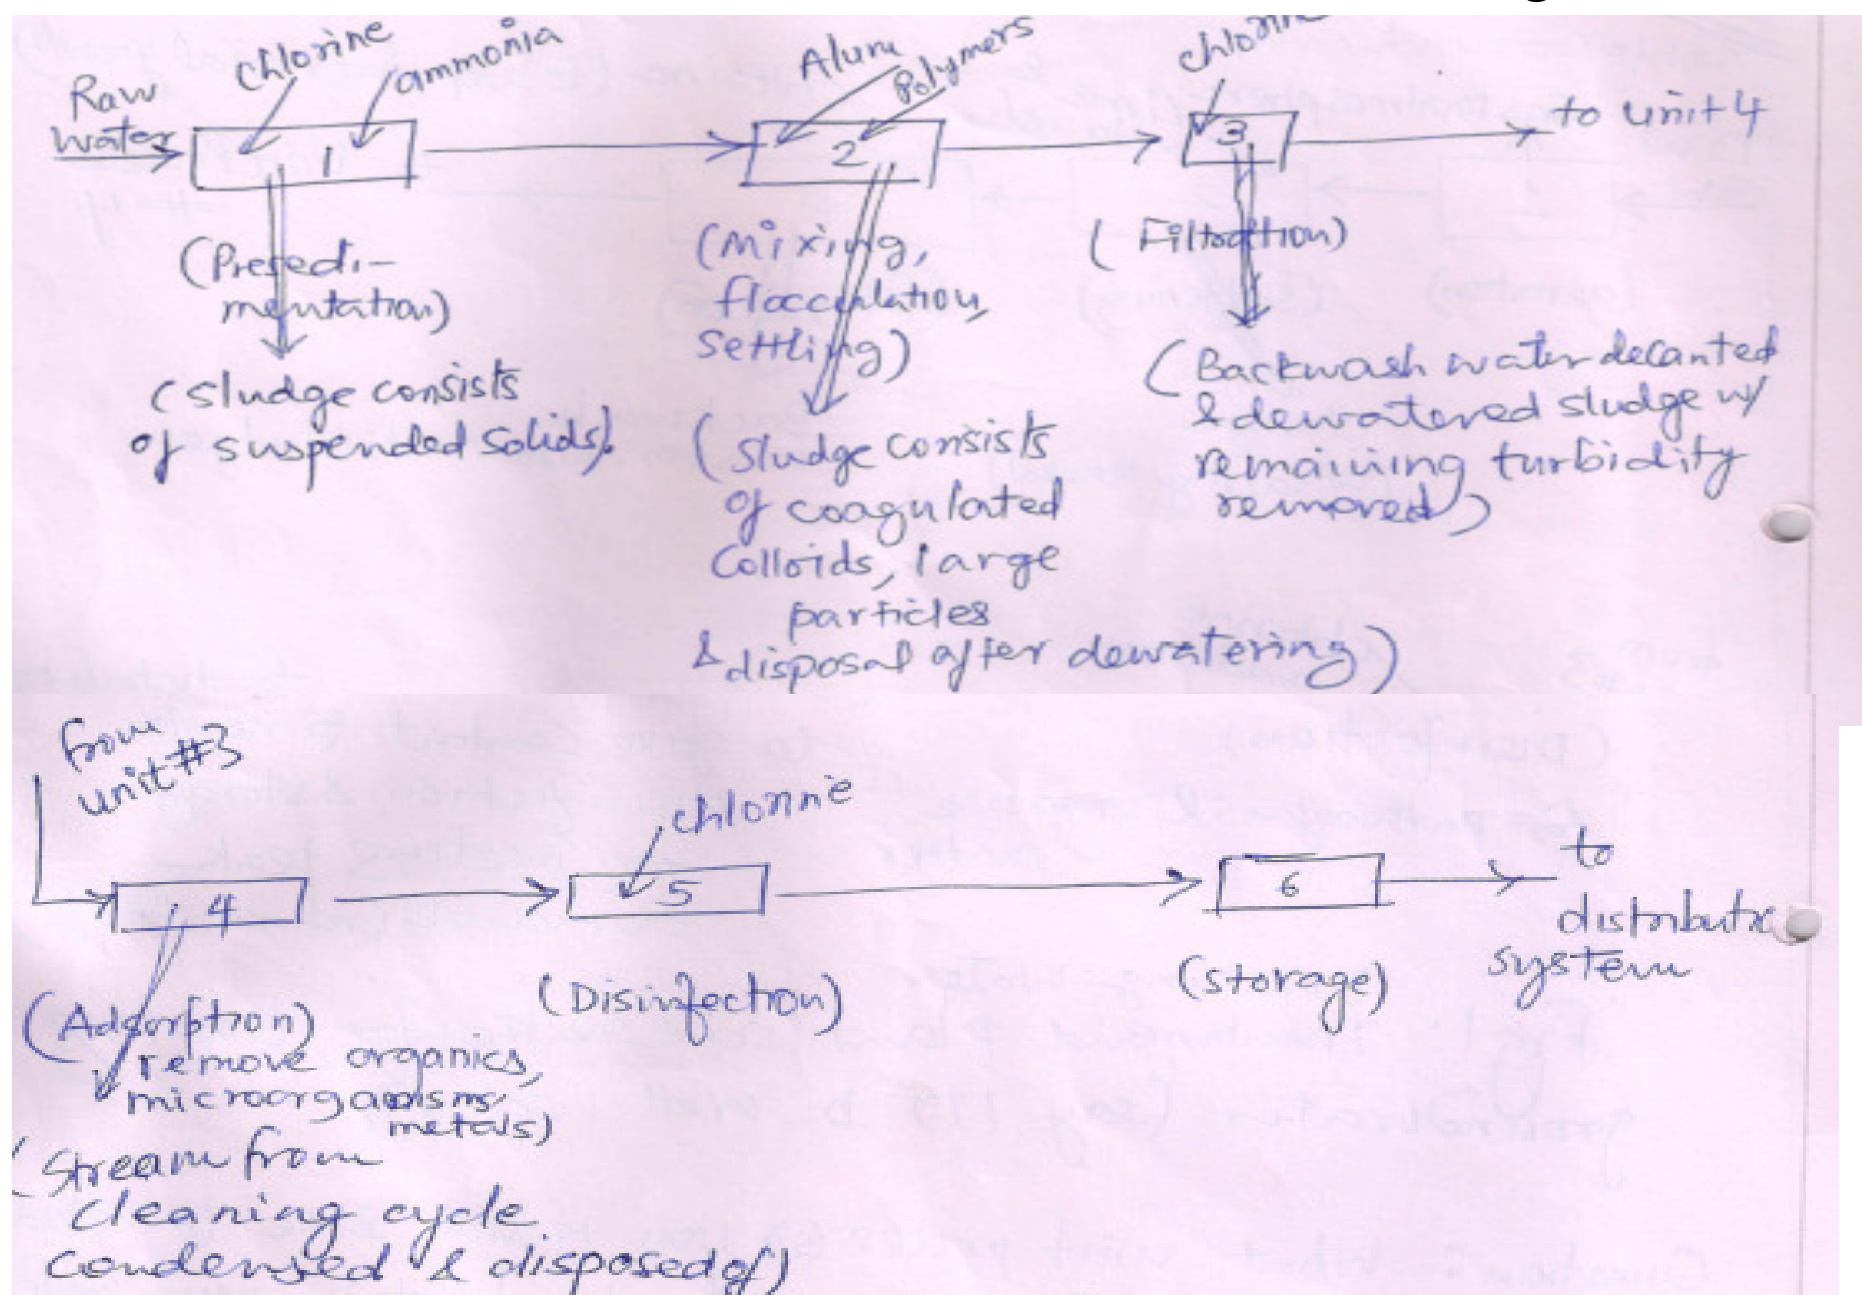 Raw water
chlorine
ammonia
1
(Presedi-
mentation)
(sludge consists
of suspended solids).
Alum
Polymers
2
(Mixing,
flocculation,
settling)
(sludge consists
of coagulated
colloids, large
particles
& disposal after dewatering)
chlorine
3
(Filtration)
(Backwash water decanted
& dewatered sludge w/
remaining turbidity
removed)
to unit 4
from
unit #3
4
(Adsorption)
remove organics,
microorganisms
metals)
(Stream from
cleaning cycle
condensed & disposed of)
chlorine
5
(Disinfection)
6
(storage)
to
system